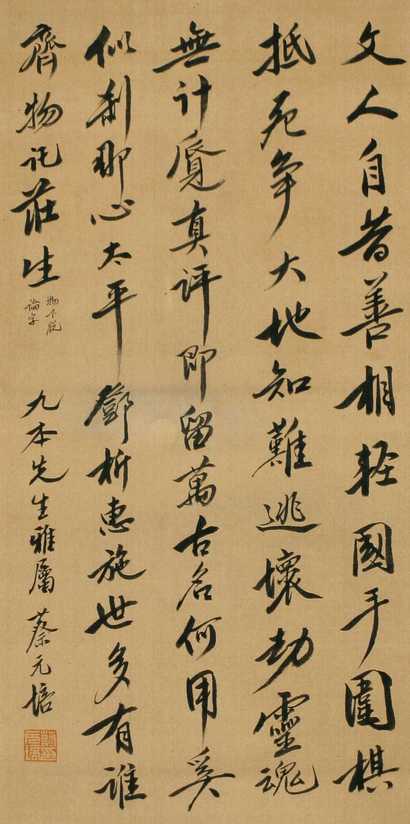 文人自昔善相輕國手圍棋
抵死爭大地知難逃壞劫靈魂
無計覓真評即留萬古名何用奚
似刹那心太平鄧析惠施世多有誰
齊物託莊生
物下脫
論字
九本先生雅屬 蔡元培